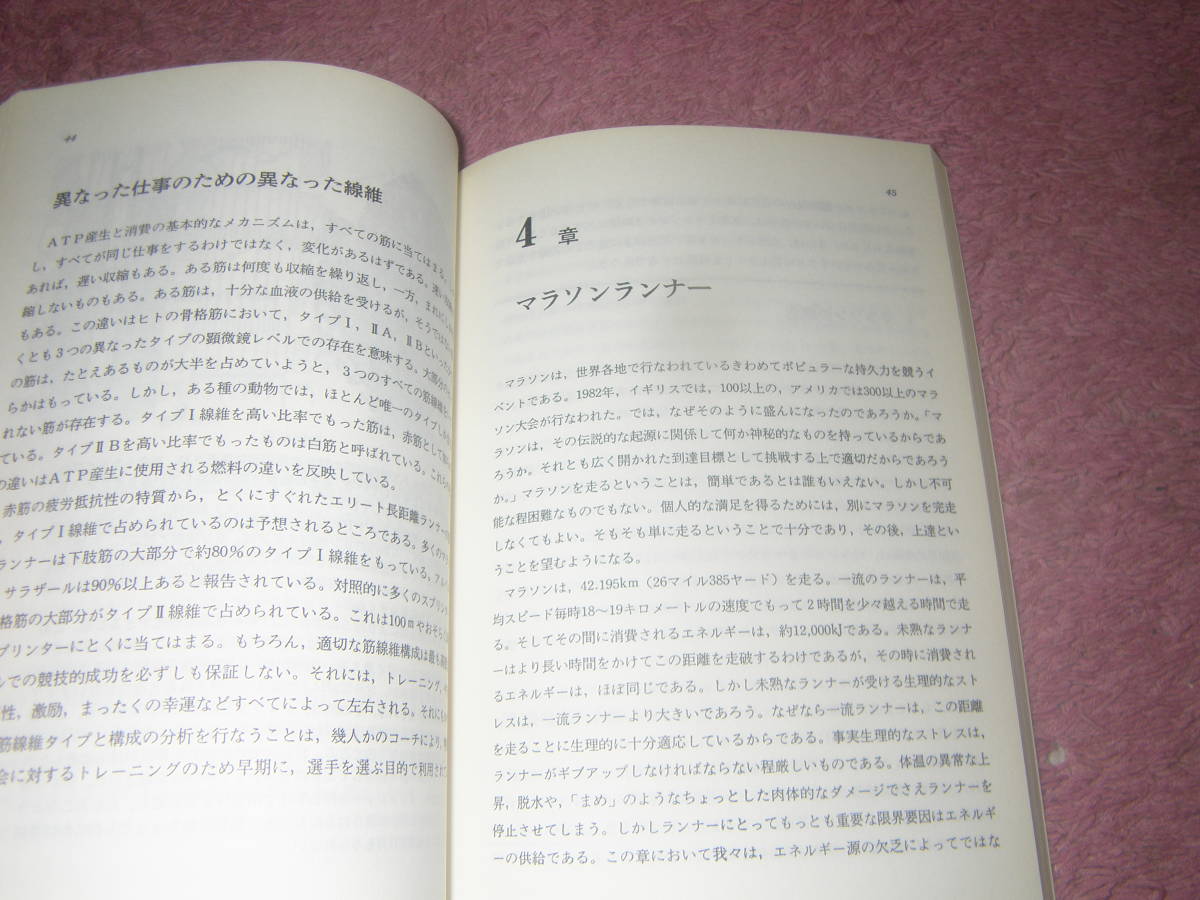 44
異なった仕事のための異なった線維
ATP産生と消費の基本的なメカニズムは，すべての筋に当てはまる。
し，すべてが同じ仕事をするわけではなく，変化があるはずである。速い
あれば，遅い収縮もある。ある筋は何度も収縮を繰り返し，一方，まれに
縮しないものもある。ある筋は，十分な血液の供給を受けるが，そうではない
もある。この違いはヒトの骨格筋において，タイプⅠ，ⅡA，ⅡBといった
くとも3つの異なったタイプの顕微鏡レベルでの存在を意味する。大部分
の筋は，たとえあるものが大半を占めていようと，3つのすべての筋線維を
らかはもっている。しかし，ある種の動物では，ほとんど唯一のタイプしか
れない筋が存在する。タイプⅠ線維を高い比率でもった筋は，赤筋として
ている。タイプⅡBを高い比率でもったものは白筋と呼ばれている。これらの
の違いはATP産生に使用される燃料の違いを反映している。
赤筋の疲労抵抗性の特質から，とくにすぐれたエリート長距離ランナー
，タイプⅠ線維で占められているのは予想されるところである。多くの
ランナーは下肢筋の大部分で約80％のタイプⅠ線維をもっている。アル
サラザールは90％以上あると報告されている。対照的に多くのスプリン
格筋の大部分がタイプⅡ線維で占められている。これは100mやおそら
プリンターにとくに当てはまる。もちろん，適切な筋線維構成は最も
ルでの競技的成功を必ずしも保証しない。それには，トレーニング，
性，激励，まったくの幸運などすべてによって左右される。それにも
筋線維タイプと構成の分析を行なうことは，幾人かのコーチにより，
会に対するトレーニングのため早期に，選手を選ぶ目的で利用されて
45
4 章
マラソンランナー
マラソンは，世界各地で行なわれているきわめてポピュラーな持久力を競うイ
ベントである。1982年，イギリスでは，100以上の，アメリカでは300以上のマラ
ソン大会が行なわれた。では，なぜそのように盛んになったのであろうか。「マ
ラソンは，その伝説的な起源に関係して何か神秘的なものを持っているからであ
ろうか。それとも広く開かれた到達目標として挑戦する上で適切だからであろう
か。」マラソンを走るということは，簡単であるとは誰もいえない。しかし不可
能な程困難なものでもない。個人的な満足を得るためには，別にマラソンを完走
しなくてもよい。そもそも単に走るということで十分であり，その後，上達とい
うことを望むようになる。
マラソンは，42.195km（26マイル385ヤード）を走る。一流のランナーは，平
均スピード毎時18〜19キロメートルの速度でもって2時間を少々越える時間で走
る。そしてその間に消費されるエネルギーは，約12,000kJである。未熟なランナ
ーはより長い時間をかけてこの距離を走破するわけであるが，その時に消費され
るエネルギーは，ほぼ同じである。しかし未熟なランナーが受ける生理的なスト
レスは，一流ランナーより大きいであろう。なぜなら一流ランナーは，この距離
を走ることに生理的に十分適応しているからである。事実生理的なストレスは，
ランナーがギブアップしなければならない程厳しいものである。体温の異常な上
昇，脱水や，「まめ」のようなちょっとした肉体的なダメージでさえランナーを
停止させてしまう。しかしランナーにとってもっとも重要な限界要因はエネルギ
ーの供給である。この章において我々は，エネルギー源の欠乏によってではな